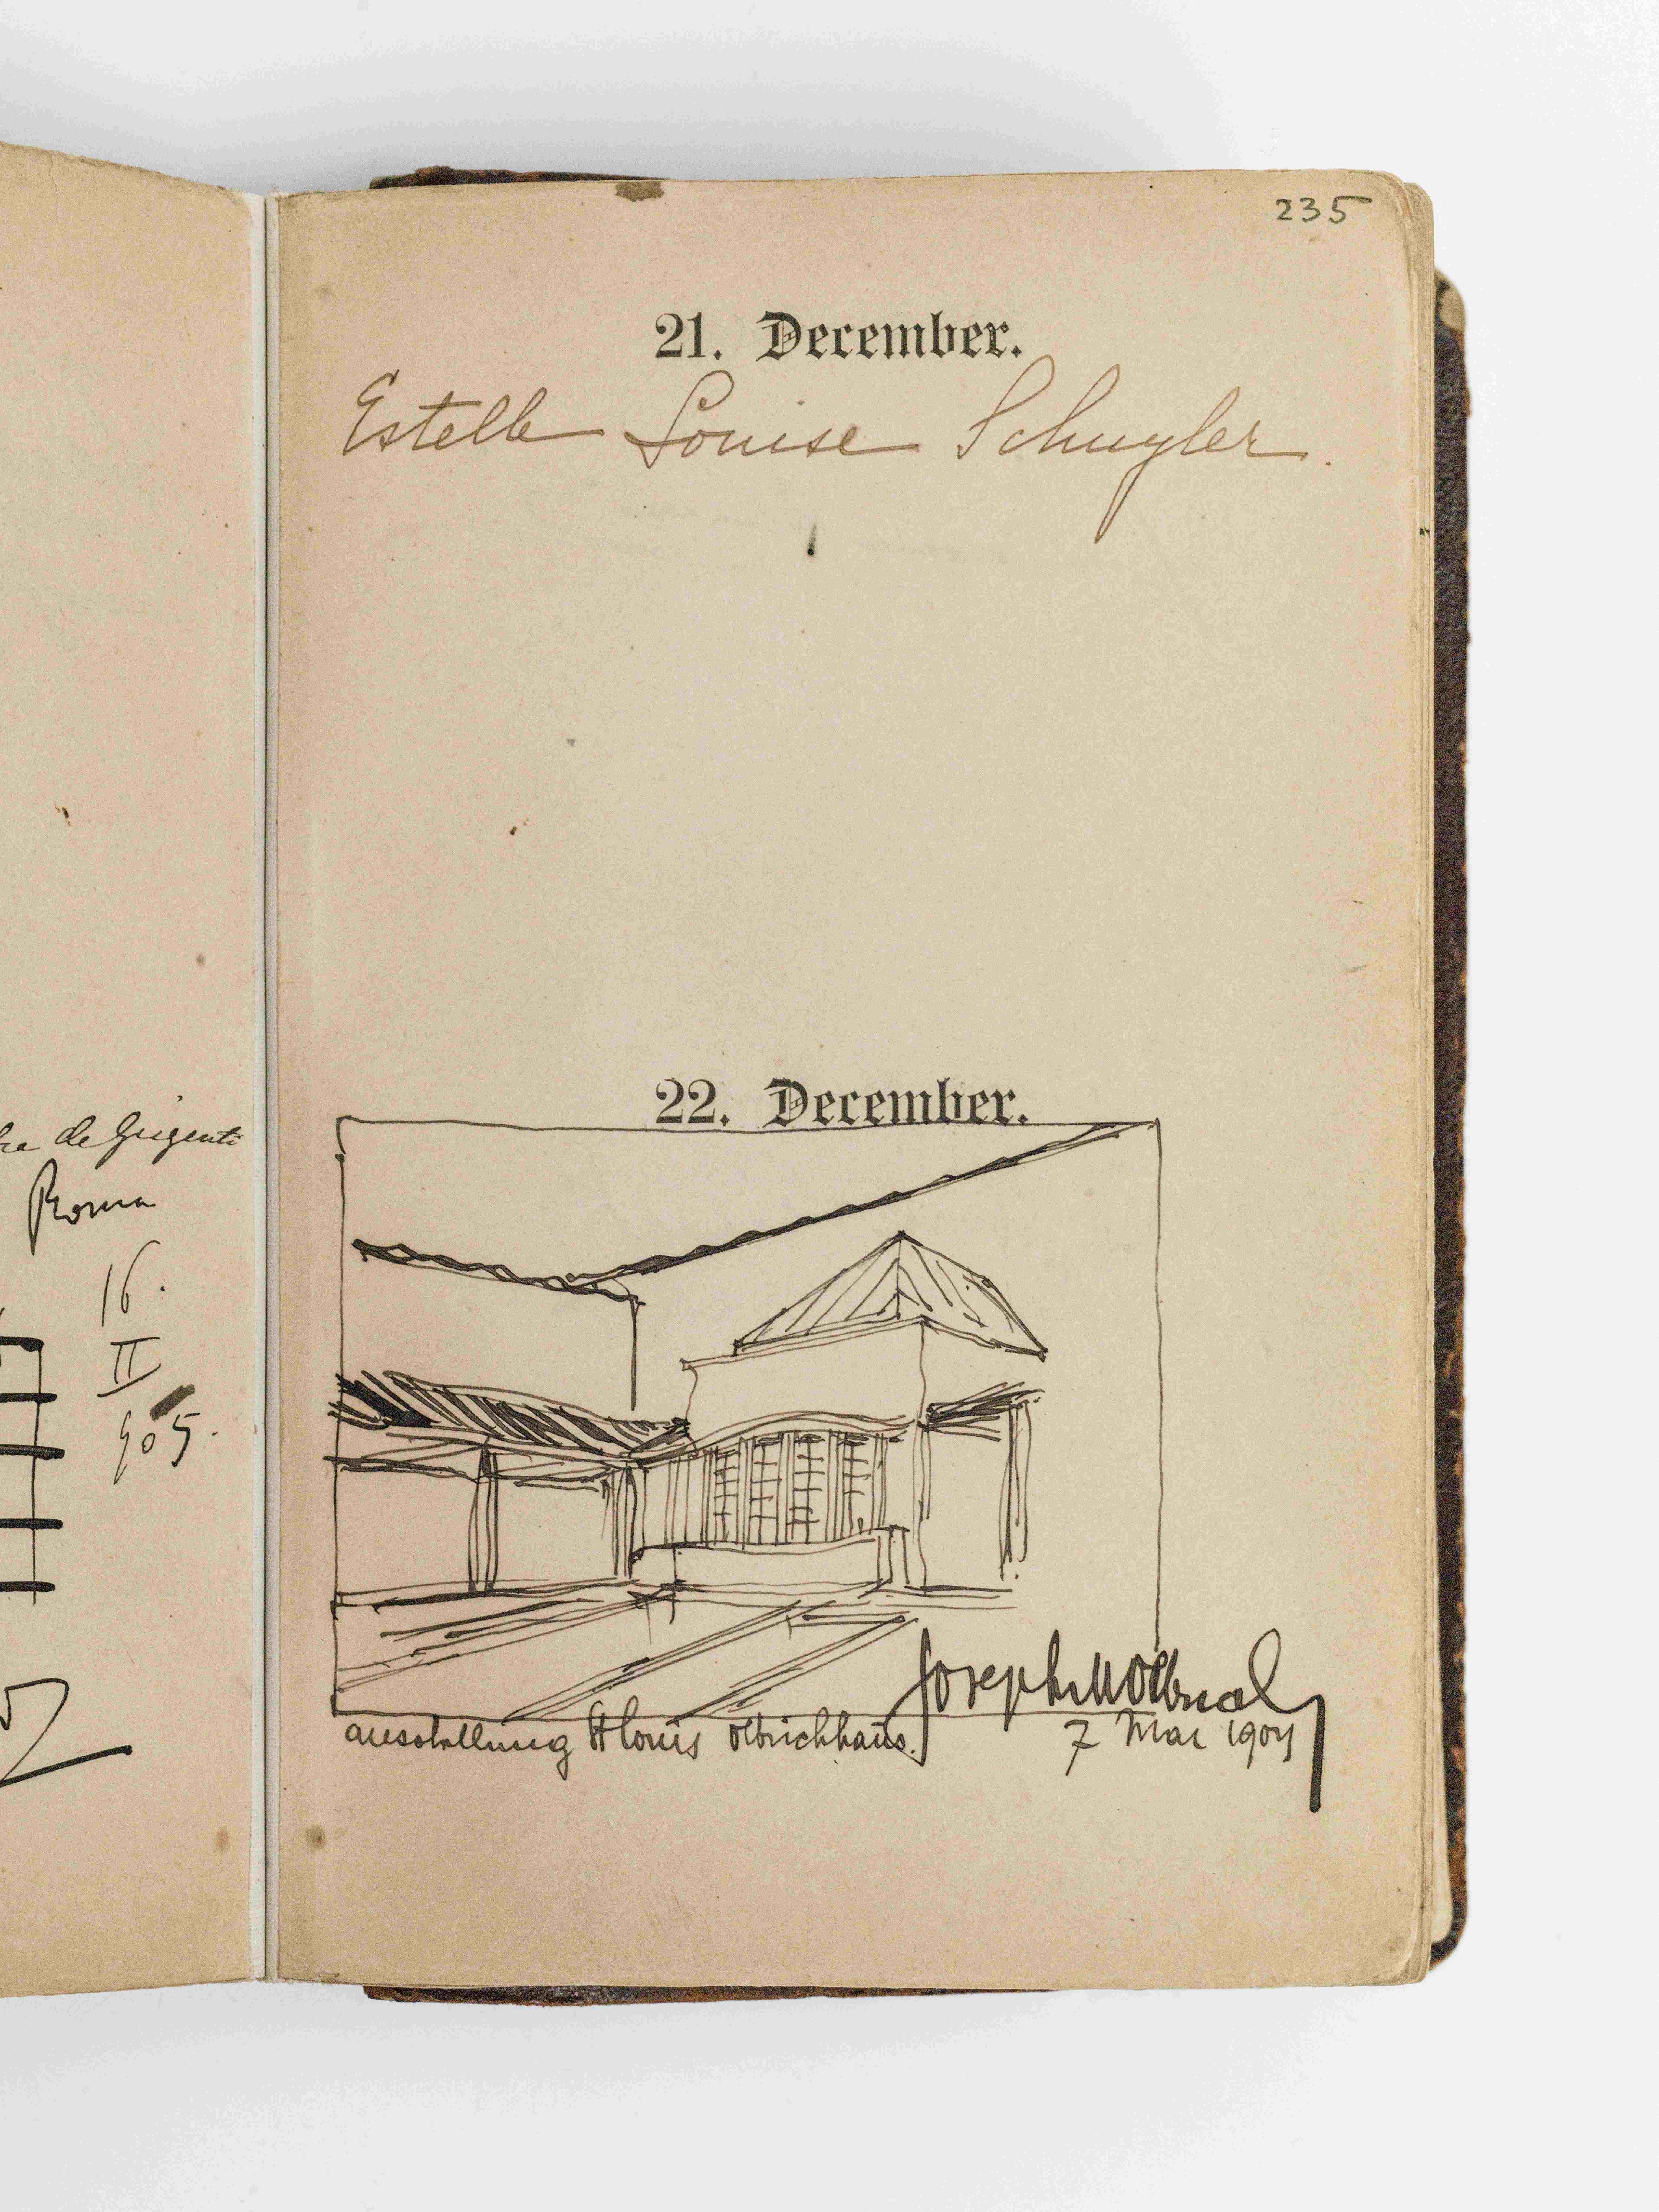 de Grigenti
Roma
16.
II
905.
235
21. December.
Estelle Louise Schuyler.
22. December.
Joseph M Olbrich
ausstellung St Louis Olbrichhaus.
7 Mai 1904